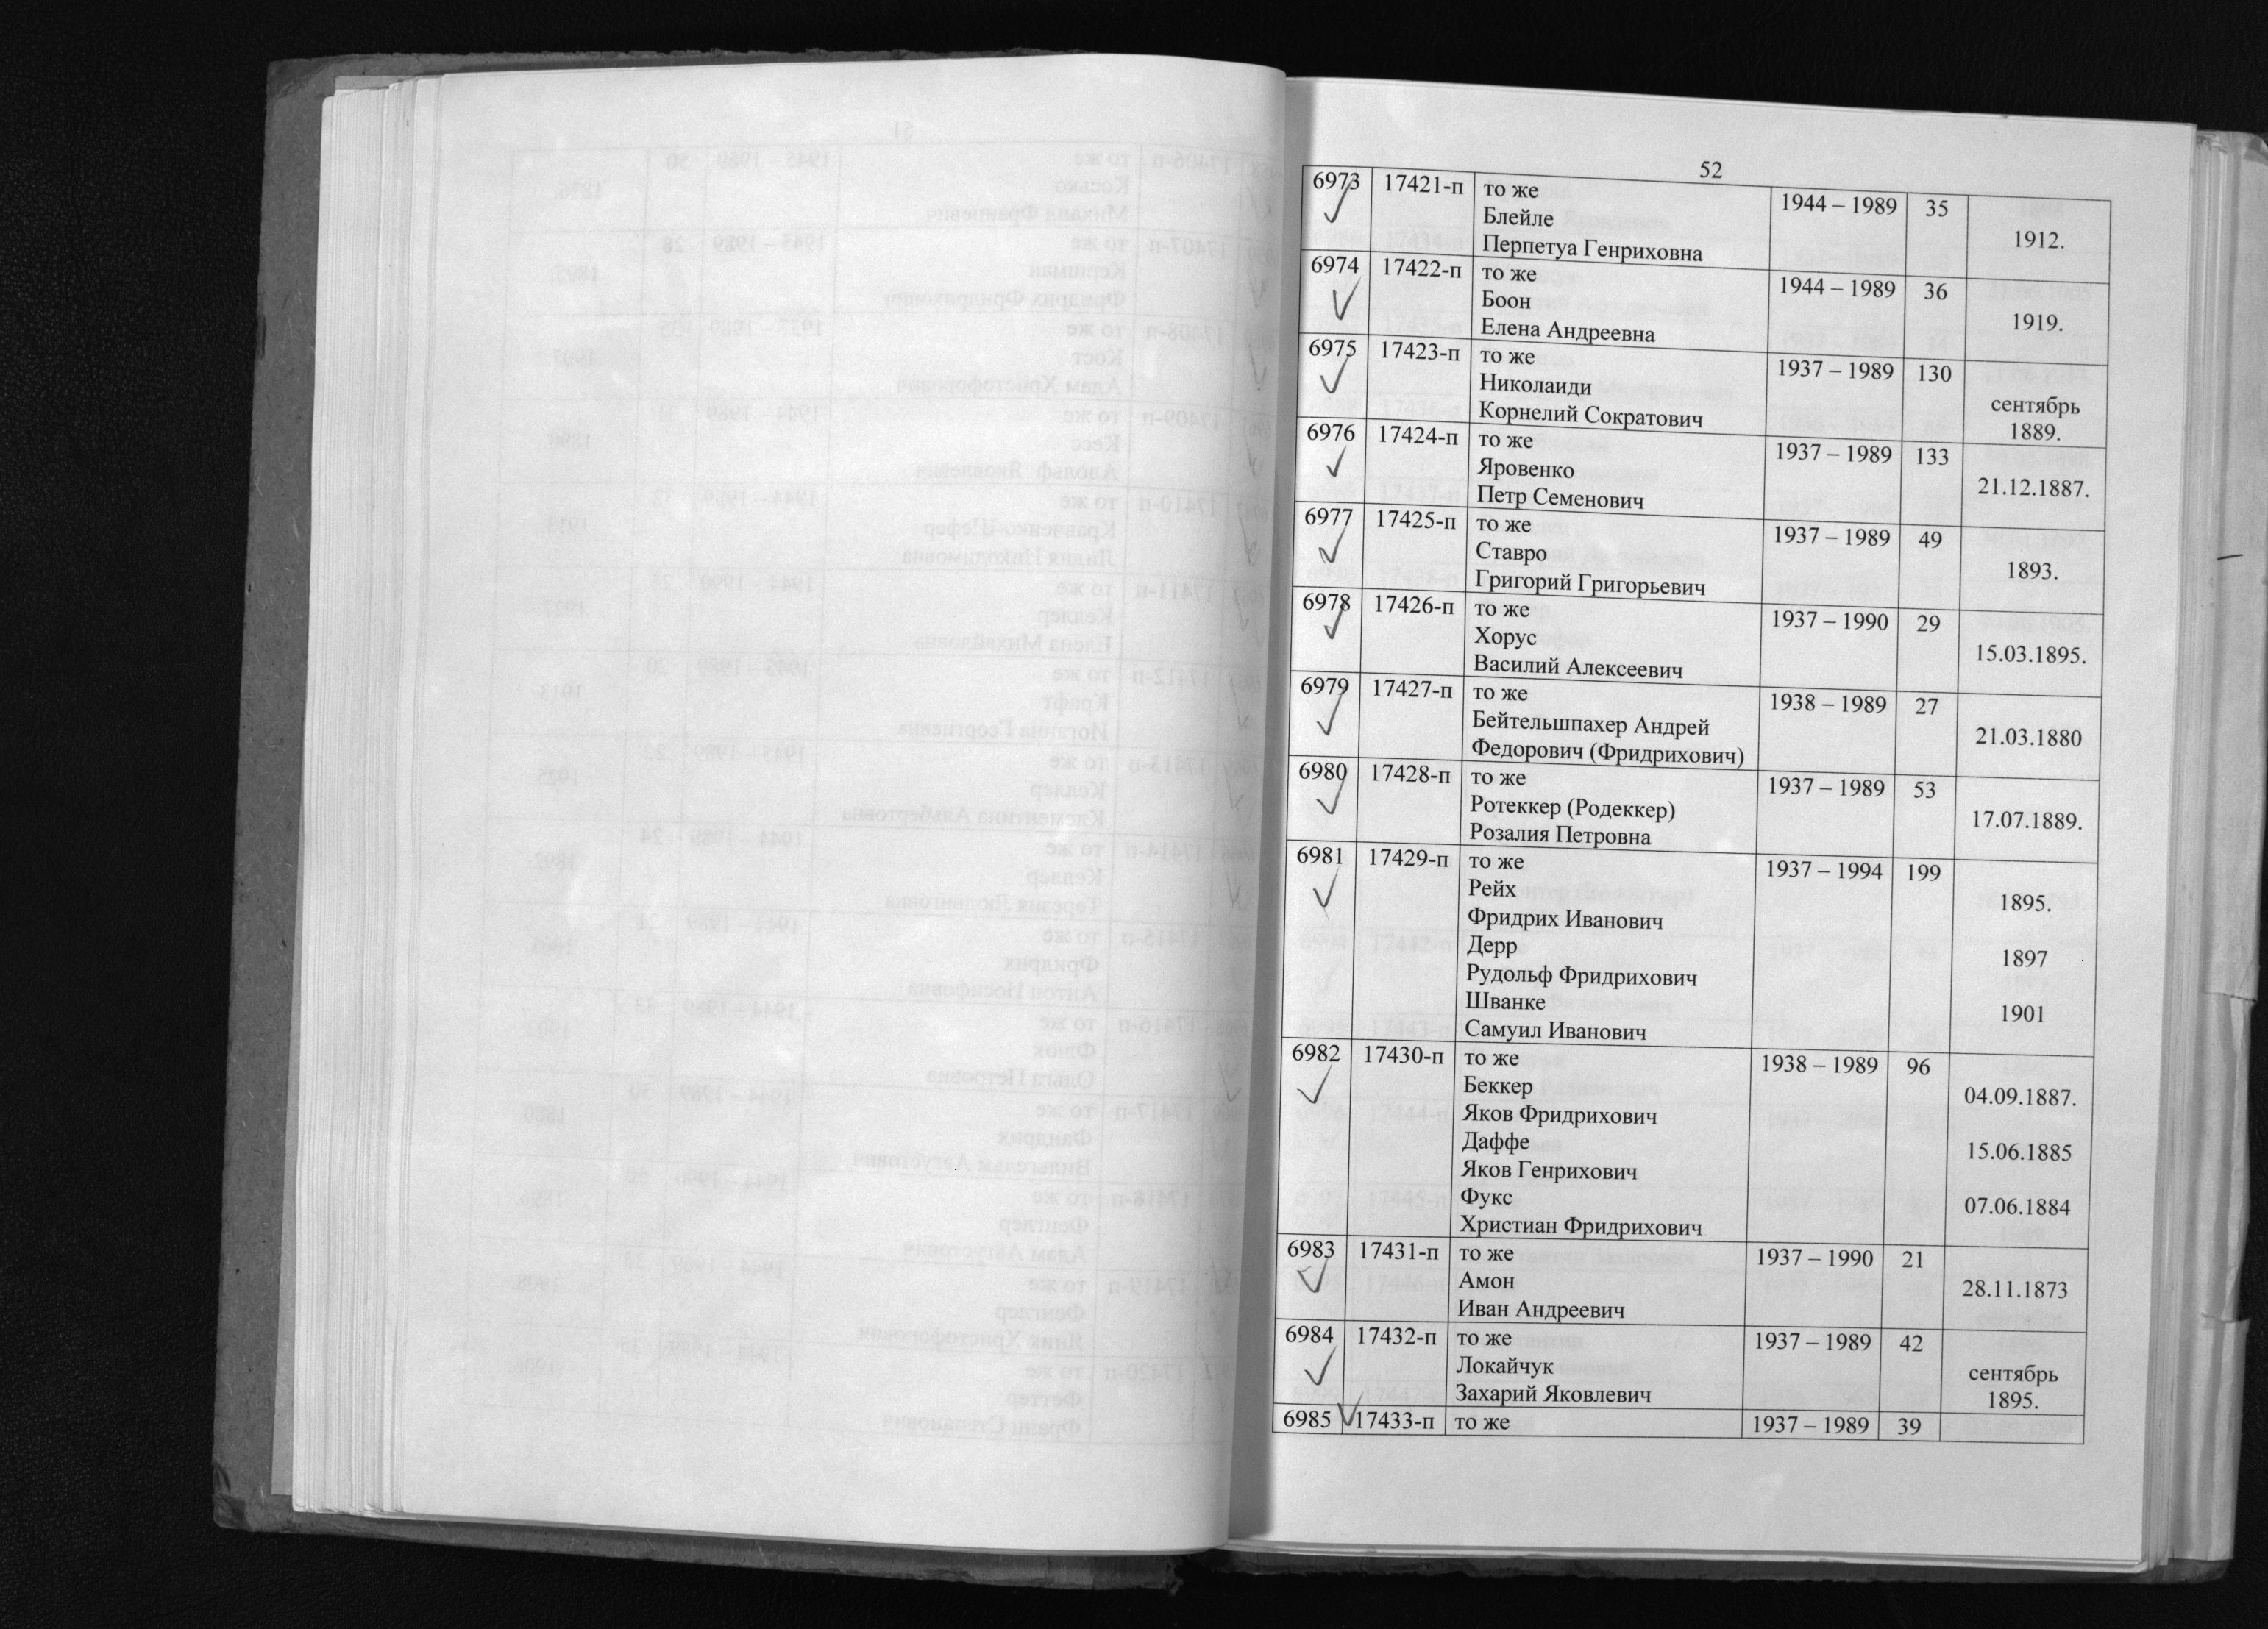 52
6973 17421-п то же 1944 – 1989 35
Блейле 1912.
Перпетуа Генриховна
6974 17422-п то же 1944 – 1989 36
Боон 1919.
Елена Андреевна
6975 17423-п то же 1937 – 1989 130
Николаиди сентябрь
Корнелий Сократович 1889.
6976 17424-п то же 1937 – 1989 133
Яровенко 21.12.1887.
Петр Семенович
6977 17425-п то же 1937 – 1989 49
Ставро 1893.
Григорий Григорьевич
6978 17426-п то же 1937 – 1990 29
Хорус 15.03.1895.
Василий Алексеевич
6979 17427-п то же 1938 – 1989 27
Бейтельшпахер Андрей 21.03.1880
Федорович (Фридрихович)
6980 17428-п то же 1937 – 1989 53
Ротеккер (Родеккер) 17.07.1889.
Розалия Петровна
6981 17429-п то же 1937 – 1994 199
Рейх 1895.
Фридрих Иванович
Дерр 1897
Рудольф Фридрихович
Шванке 1901
Самуил Иванович
6982 17430-п то же 1938 – 1989 96
Беккер 04.09.1887.
Яков Фридрихович
Даффе 15.06.1885
Яков Генрихович
Фукс 07.06.1884
Христиан Фридрихович
6983 17431-п то же 1937 – 1990 21
Амон 28.11.1873
Иван Андреевич
6984 17432-п то же 1937 – 1989 42
Локайчук сентябрь
Захарий Яковлевич 1895.
6985 17433-п то же 1937 – 1989 39